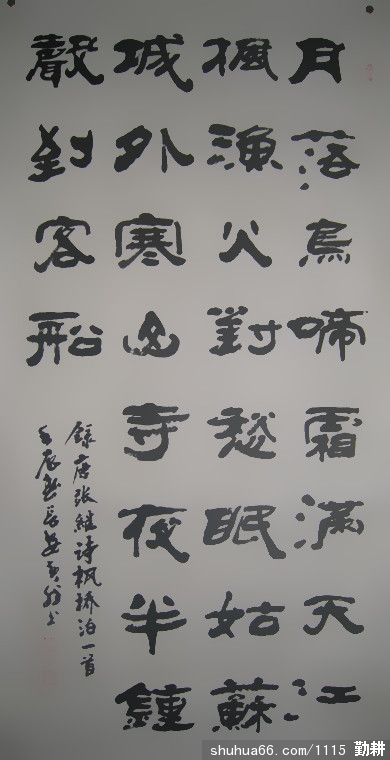 月落烏啼霜滿天江
楓漁火對愁眠姑蘇
城外寒山寺夜半鐘
聲到客船
録唐张继诗枫桥泊一首
壬辰
shuhua66.com/1115 勤耕